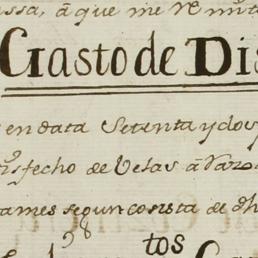 assa, a que me remito
Gasto de Dis
en data Setenta y dos
isfecho de Velas a razo
ames segun consta de dh
98
tos